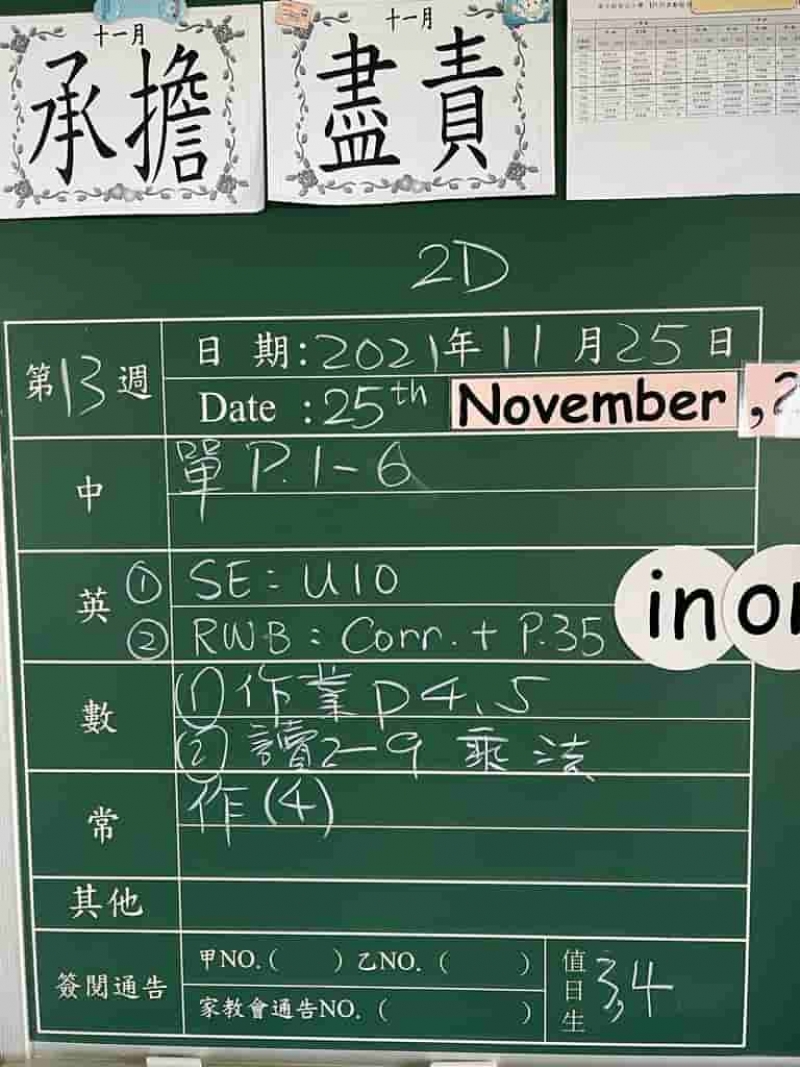 十一月
承擔
十一月
盡責
2D
第13週
日 期:2021年11月25日
Date :25th November ,2
中
單 P.1-6
英
① SE: U10
② RWB: Corr. + P.35
in on
數
(1) 作業 p4,5
(2) 讀2-9 乘法
常
作(4)
其他
簽閱通告
甲NO.( ) 乙NO. ( )
家教會通告NO. ( )
值日生
3,4